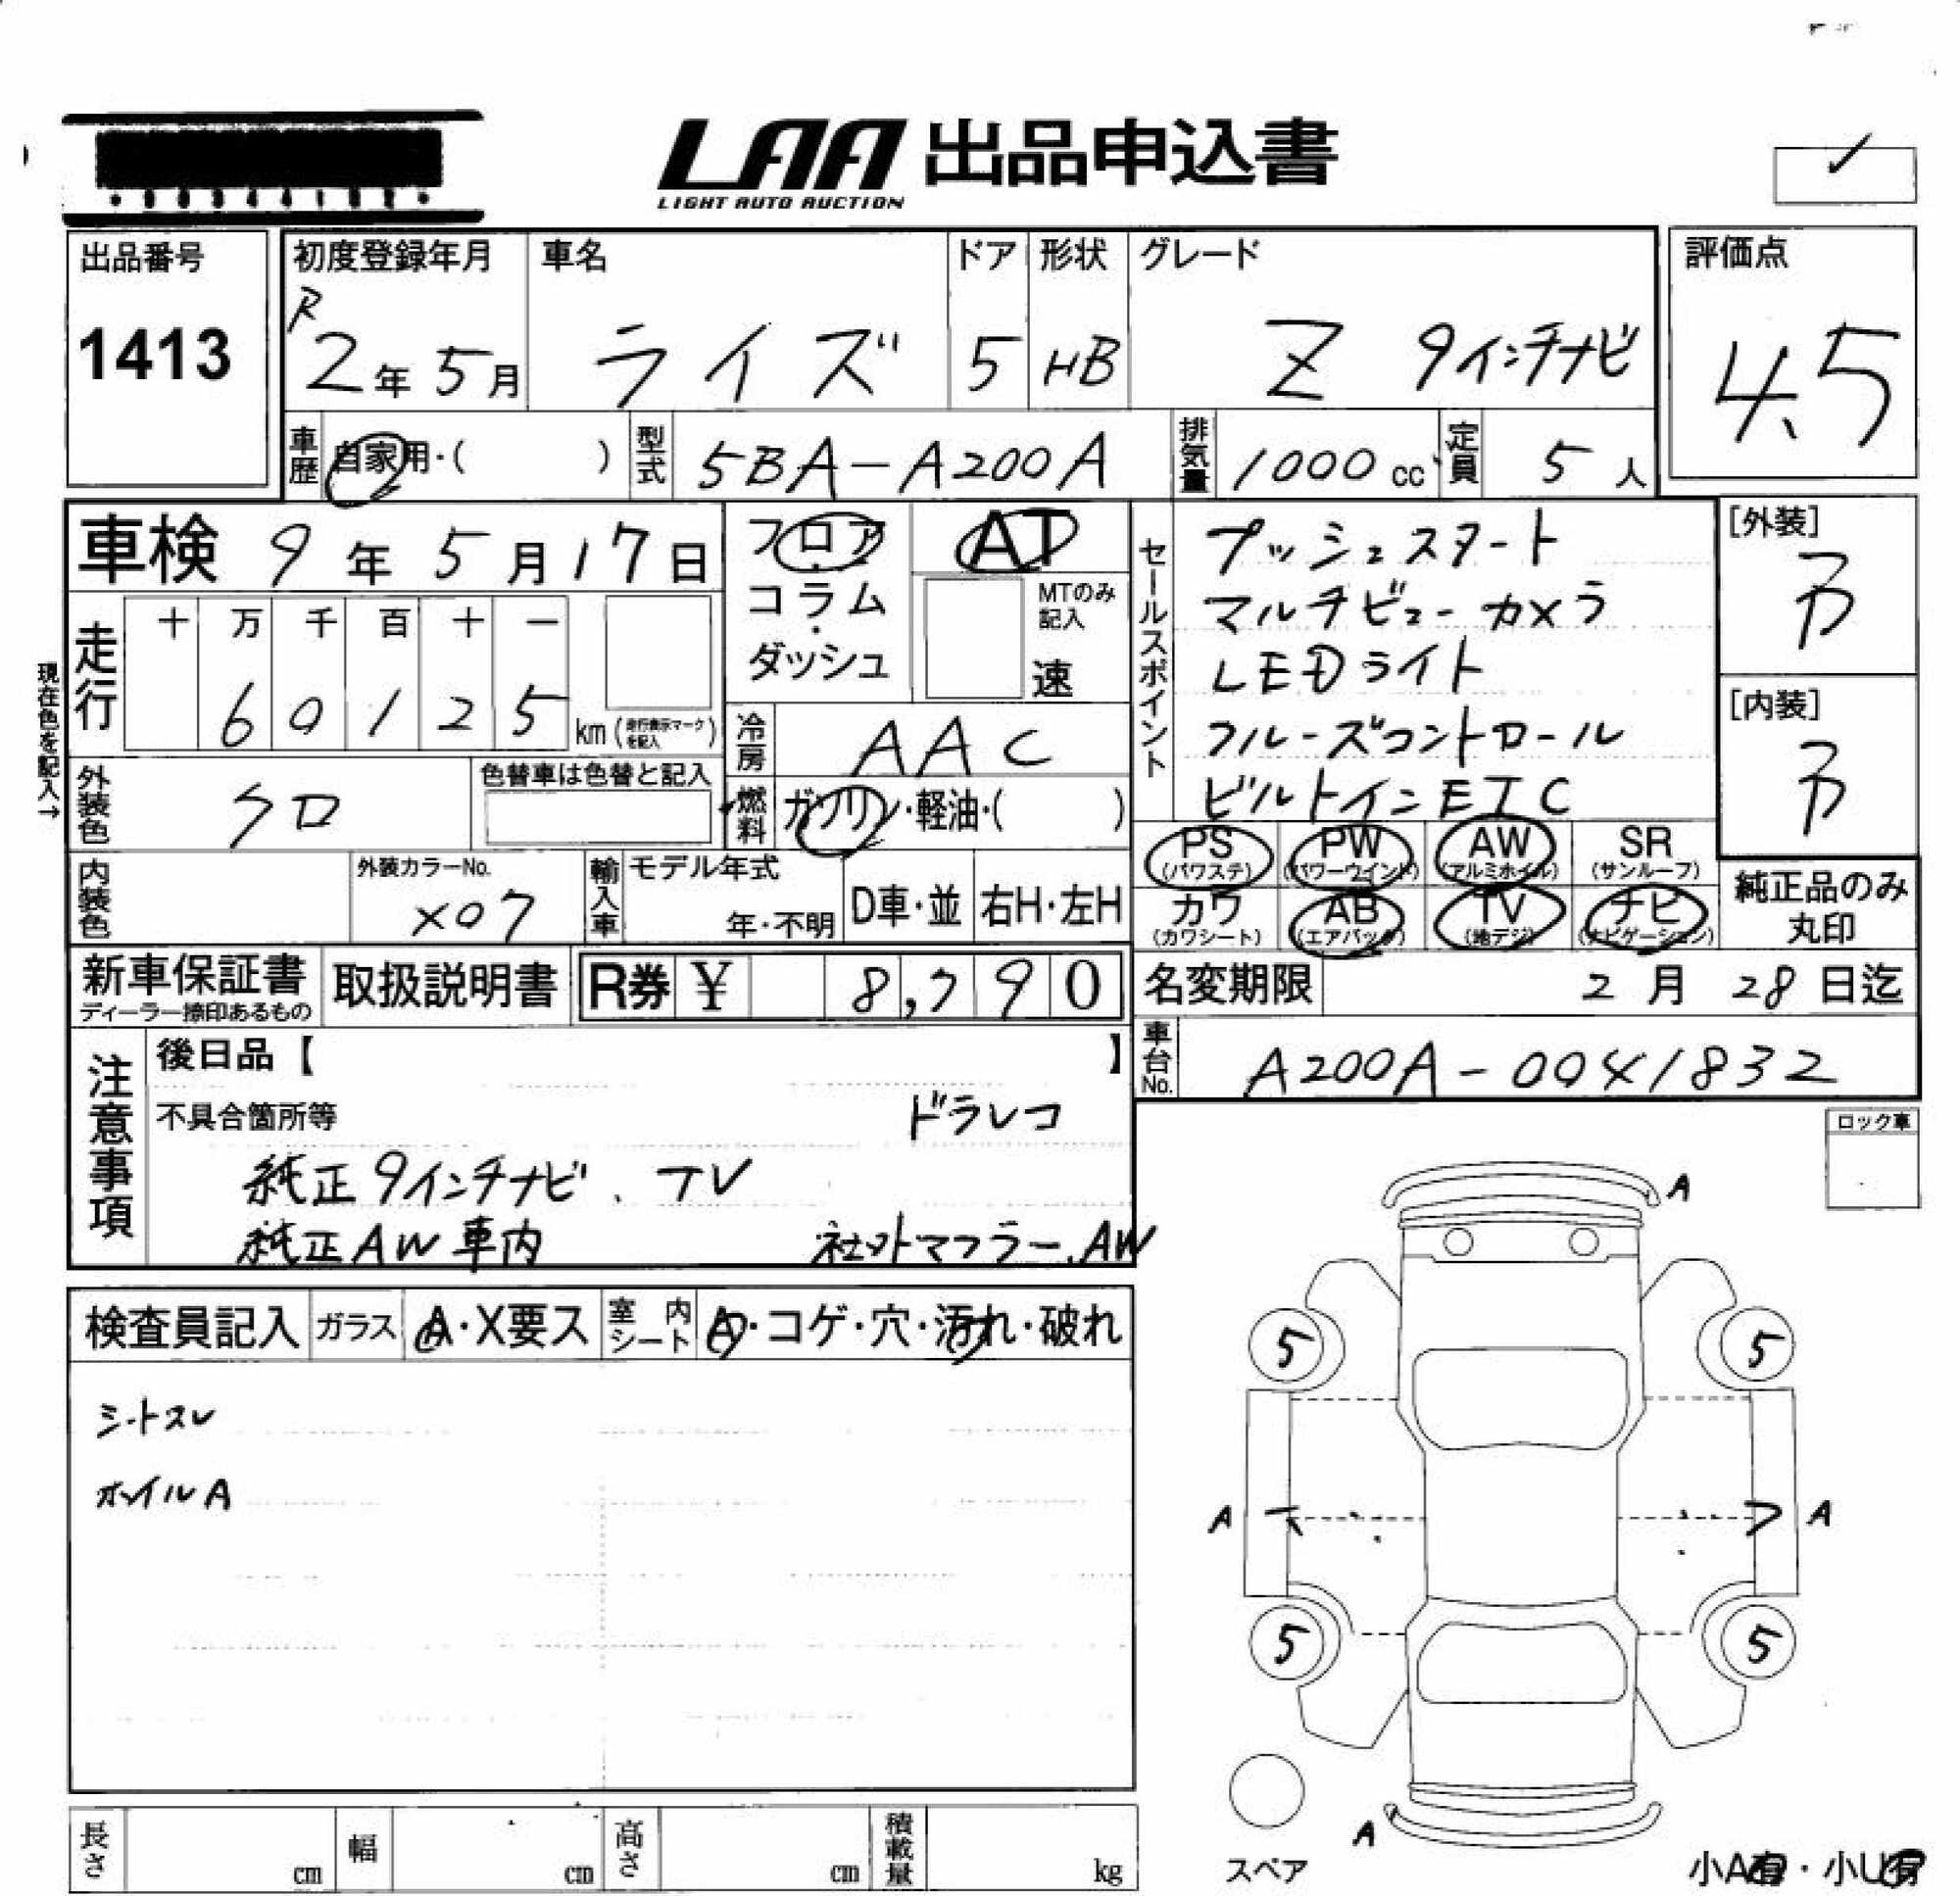 LAA 出品申込書
LIGHT AUTO AUCTION
出品番号
1413
初度登録年月
R
2年5月
車名
ライズ
ドア
5
形状
HB
グレード
Z 9インチナビ
評価点
4.5
車歴
自家用・( )
型式
5BA-A200A
排気量
1000 cc
定員
5 人
車検 9年5月17日
フロア
コラム
・
ダッシュ
AT
MTのみ記入
速
セールスポイント
プッシュスタート
マルチビューカメラ
LEDライト
クルーズコントロール
ビルトインETC
[外装]
[内装]
現在色を記入→
走行
十 万 千 百 十 一
6 0 1 2 5
km (走行表示マークを記入)
冷房
AAC
外装色
クロ
色替車は色替と記入
燃料
ガソリン・軽油・( )
内装色
外装カラーNo.
X07
輸入車
モデル年式
年・不明
D車・並
右H・左H
PS (パワステ)
PW (パワーウインド)
AW (アルミホイル)
SR (サンルーフ)
カワ (カワシート)
AB (エアバック)
TV (地デジ)
ナビ (ナビゲーション)
純正品のみ丸印
新車保証書
ディーラー捺印あるもの
取扱説明書
R券 ¥ 8,790
名変期限
2月28日迄
車台No.
A200A-0041832
注意事項
後日品【 】
不具合箇所等
ドラレコ
純正9インチナビ、TV
純正AW車内
社外マフラー、AW
ロック車
検査員記入
ガラス
A・X要ス
室内シート
・コゲ・穴・汚れ・破れ
シートスレ
ホイルA
A
5
5
A
A
5
5
A
スペア
小A有・小U有
長さ
cm
幅
cm
高さ
cm
積載量
kg